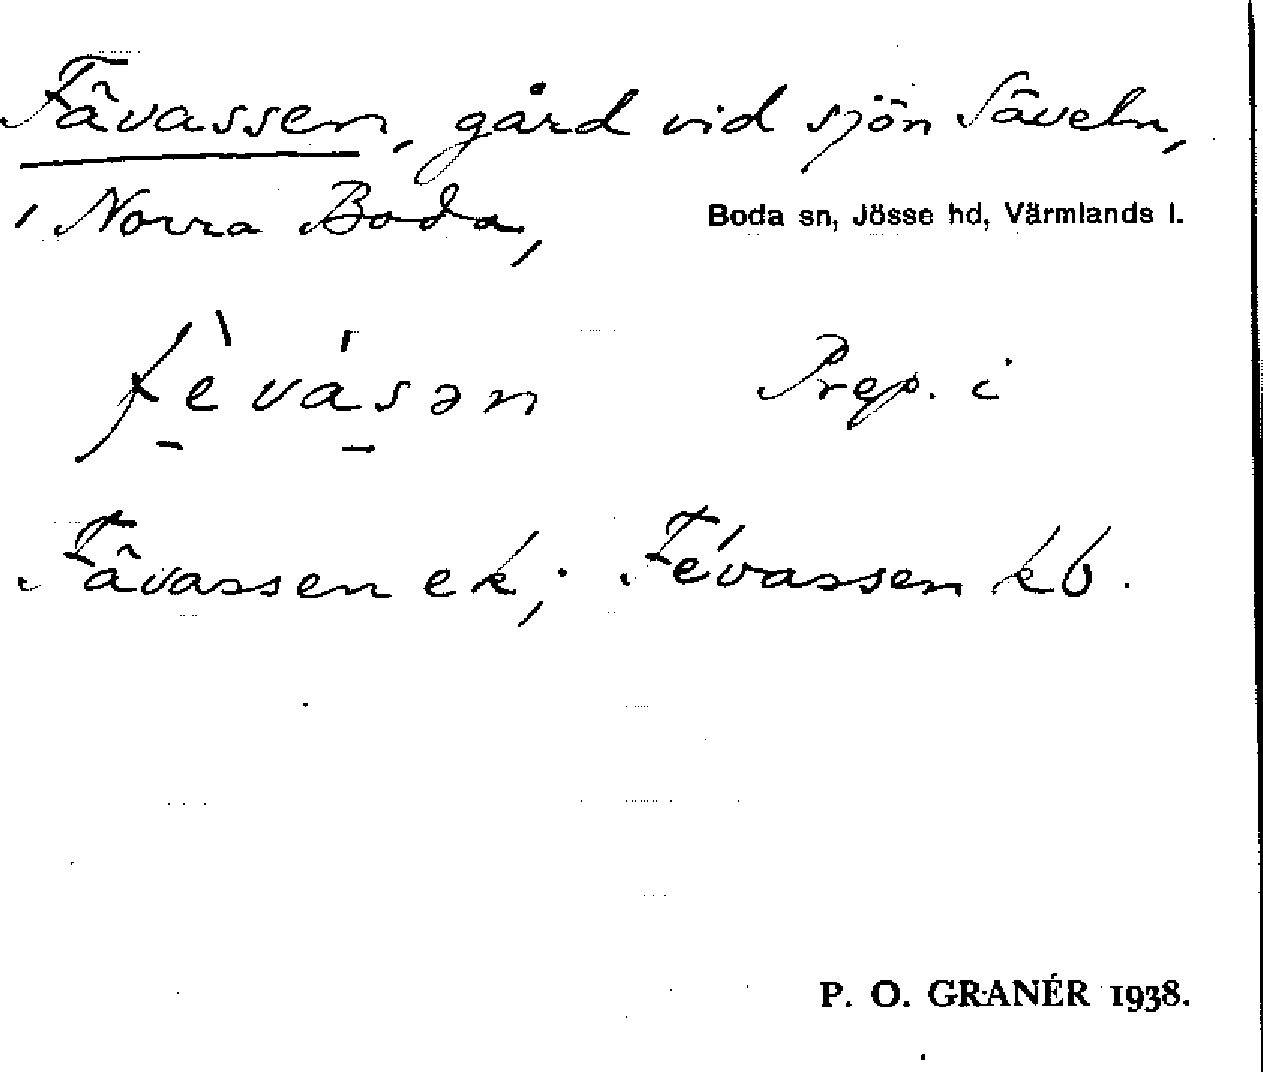 Fävassen, gård vid sjön Säveln,
i Norra Boda, Boda sn, Jösse hd, Värmlands l.
fè̠vá̠sən Prep. i
Fävassen ek; Févassen kb.
P. O. GRANÉR 1938.